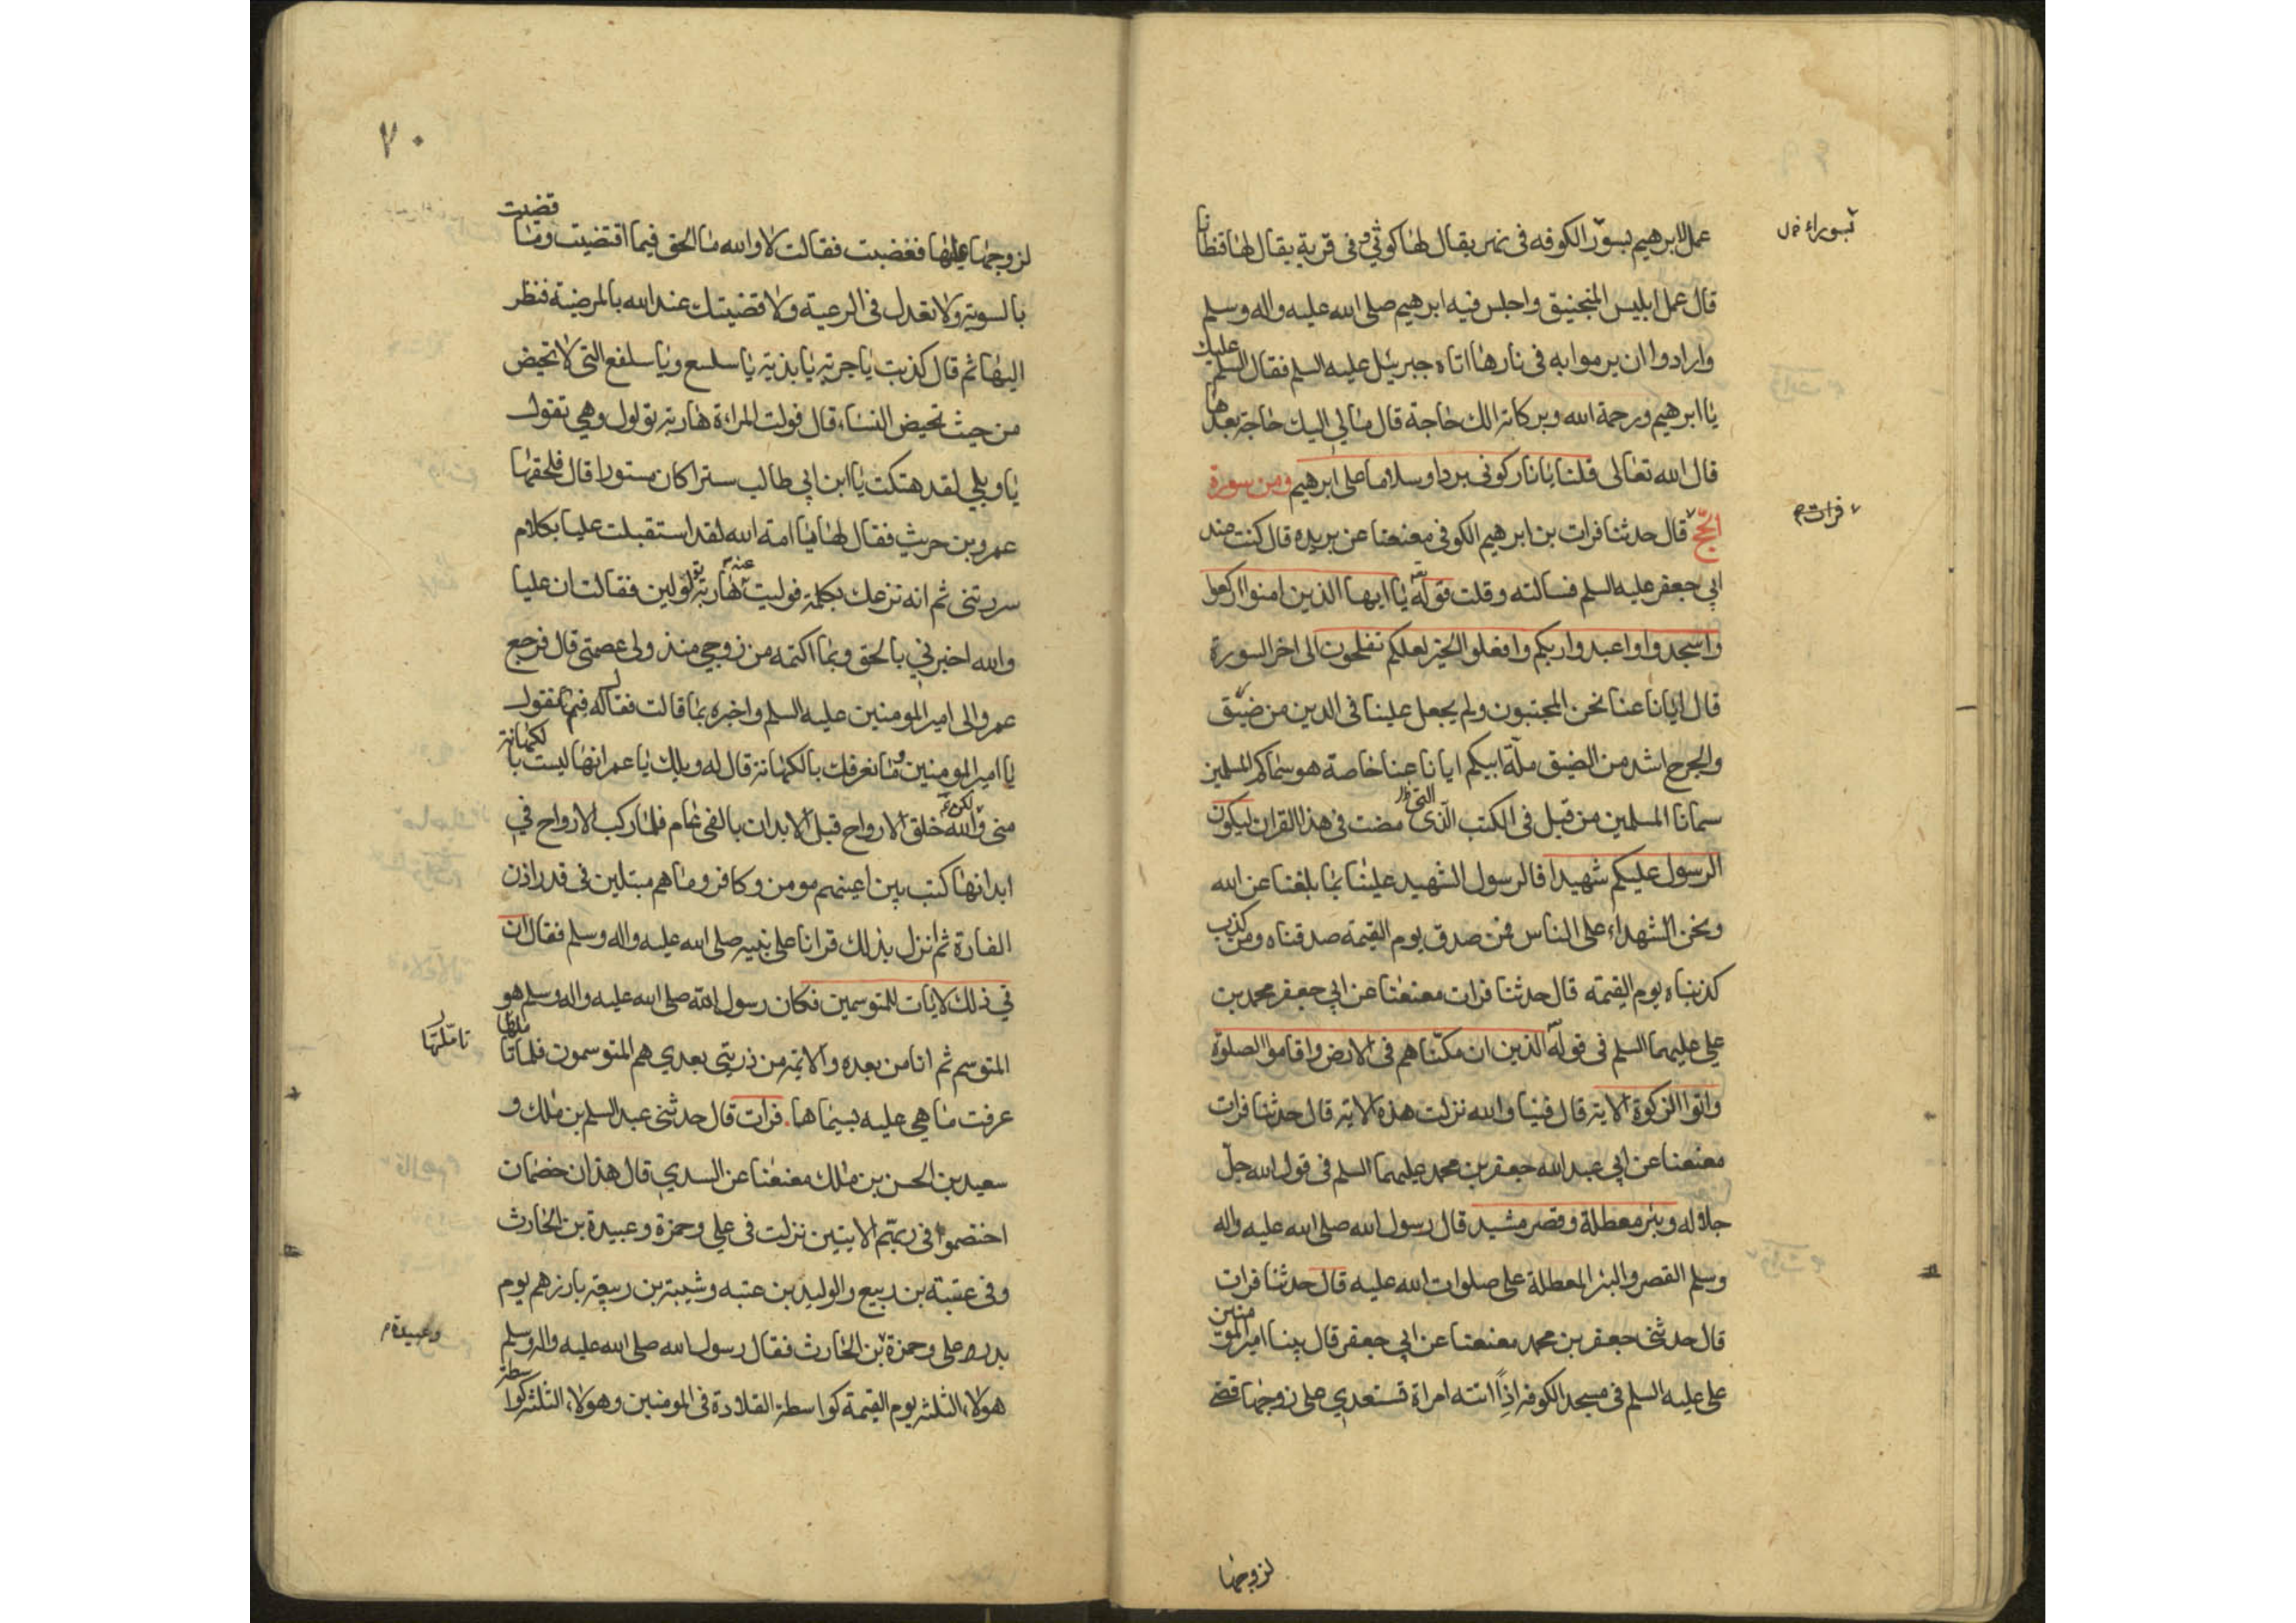 عمل لابرهيم بسور الكوفه فى نهر يقال لها كوثى وفى قرية يقال لها قنطانا
بسوراء خ ل
قال عمل ابليس المنجنيق واجلس فيه ابرهيم صلى الله عليه واله وسلم
وارادوا ان يرموا به فى نارها اتاه جبرئيل عليه السلم فقال السلم عليك
يا ابرهيم ورحمة الله وبركاته الك حاجة قال مالي اليك حاجة بعدها
قال الله تعالى قلنا يا نار كونى بردا وسلاما على ابرهيم ومن سورة
الحج قال حدثنا فرات بن ابرهيم الكوفى معنعنا عن بريده قال كنت عند
فرات م
ابي جعفر عليه السلم فسالته وقلت قوله يا ايها الذين امنوا اركعوا
واسجدوا واعبدوا ربكم وافعلوا الخير لعلكم تفلحون الى اخر السورة
قال ايانا عنا نحن المجتبون ولم يجعل علينا فى الدين من ضيق
والحرج اشد من الضيق ملة ابيكم ايانا عنا خاصة هو سماكم المسلمين
سمانا المسلمين من قبل فى الكتب الذى التى مضت فى هذا القران ليكون
الرسول عليكم شهيدا فالرسول الشهيد علينا بما بلغنا عن الله
ونحن الشهداء على الناس فمن صدق يوم القيمة صدقناه ومن كذب
كذبناه يوم القيمة قال حدثنا فرات معنعنا عن ابي جعفر محمد بن
علي عليهما السلم فى قوله الذين ان مكناهم فى الارض واقاموا الصلوة
واتوا الزكوة الاية قال فينا والله نزلت هذه الاية قال حدثنا فرات
معنعنا عن ابي عبد الله جعفر بن محمد عليهما السلم فى قول الله جل
جلاله وبئر معطلة وقصر مشيد قال رسول الله صلى الله عليه واله
وسلم القصر والبئر المعطلة على صلوات الله عليه قال حدثنا فرات
قال حدثنى جعفر بن محمد معنعنا عن ابي جعفر قال بينا امير المومنين
على عليه السلم فى مسجد الكوفة اذا اتته امراة تستعدي على زوجها فقضى
لزوجها
٧٠
لزوجها عليها فغضبت فقالت لا والله ما الحق فيما اقتضيت وما قضيت
بالسوية ولا تعدل فى الرعية ولا قضيتك عند الله بالمرضية فنظر
اليها ثم قال كذبت يا جرية يا بذية يا سلسع ويا سلفع التى لا تحيض
من حيث تحيض النساء قال فولت المراة هاربة تولول وهي تقول
يا ويلي لقد هتكت يا ابن ابي طالب سترا كان مستورا قال فلحقها
عمرو بن حريث فقال لها يا امة الله لقد استقبلت عليا بكلام
سررتنى ثم انه نزعك بكلمة فوليت عنه هاربة تولولين فقالت ان عليا
والله اخبرني بالحق وبما اكتمه من زوجي منذ ولى عصمتى قال فرجع
عمرو الى امير المومنين عليه السلم واخبره بما قالت فقال له فيما تقول
يا امير المومنين وما نعرفك بالكهانة قال له ويلك يا عمر انها ليست بالكهانة
منى ولكن الله خلق الارواح قبل الابدان بالفى عام فلما ركب الارواح في
ابدانها كتب بين اعينهم مومن وكافر وما هم مبتلين فى قدر اذن
الفارة ثم انزل بذلك قرانا على نبيه صلى الله عليه واله وسلم فقال ان
في ذلك لايات للمتوسمين فكان رسول الله صلى الله عليه واله وسلم هو
المتوسم ثم انا من بعده والائمة من ذريتي بعدي هم المتوسمون فلما
تاملتها
عرفت ما هي عليه بسيماها. فرات قال حدثنى عبد السلم بن ملك و
سعيد بن الحسن بن ملك معنعنا عن السدي قال هذان خصمان
اختصموا فى ربهم الايتين نزلت في علي وحمزة وعبيدة بن الحارث
وفى عتبة بن ربيع والوليد بن عتبه وشيبة بن ربيعة بارزهم يوم
بدر على وحمزة بن الحارث فقال رسول الله صلى الله عليه واله وسلم
وعبيدة م
هولاء الثلثة يوم القيمة كواسطة القلادة فى المومنين وهولاء الثلثة كواسطة